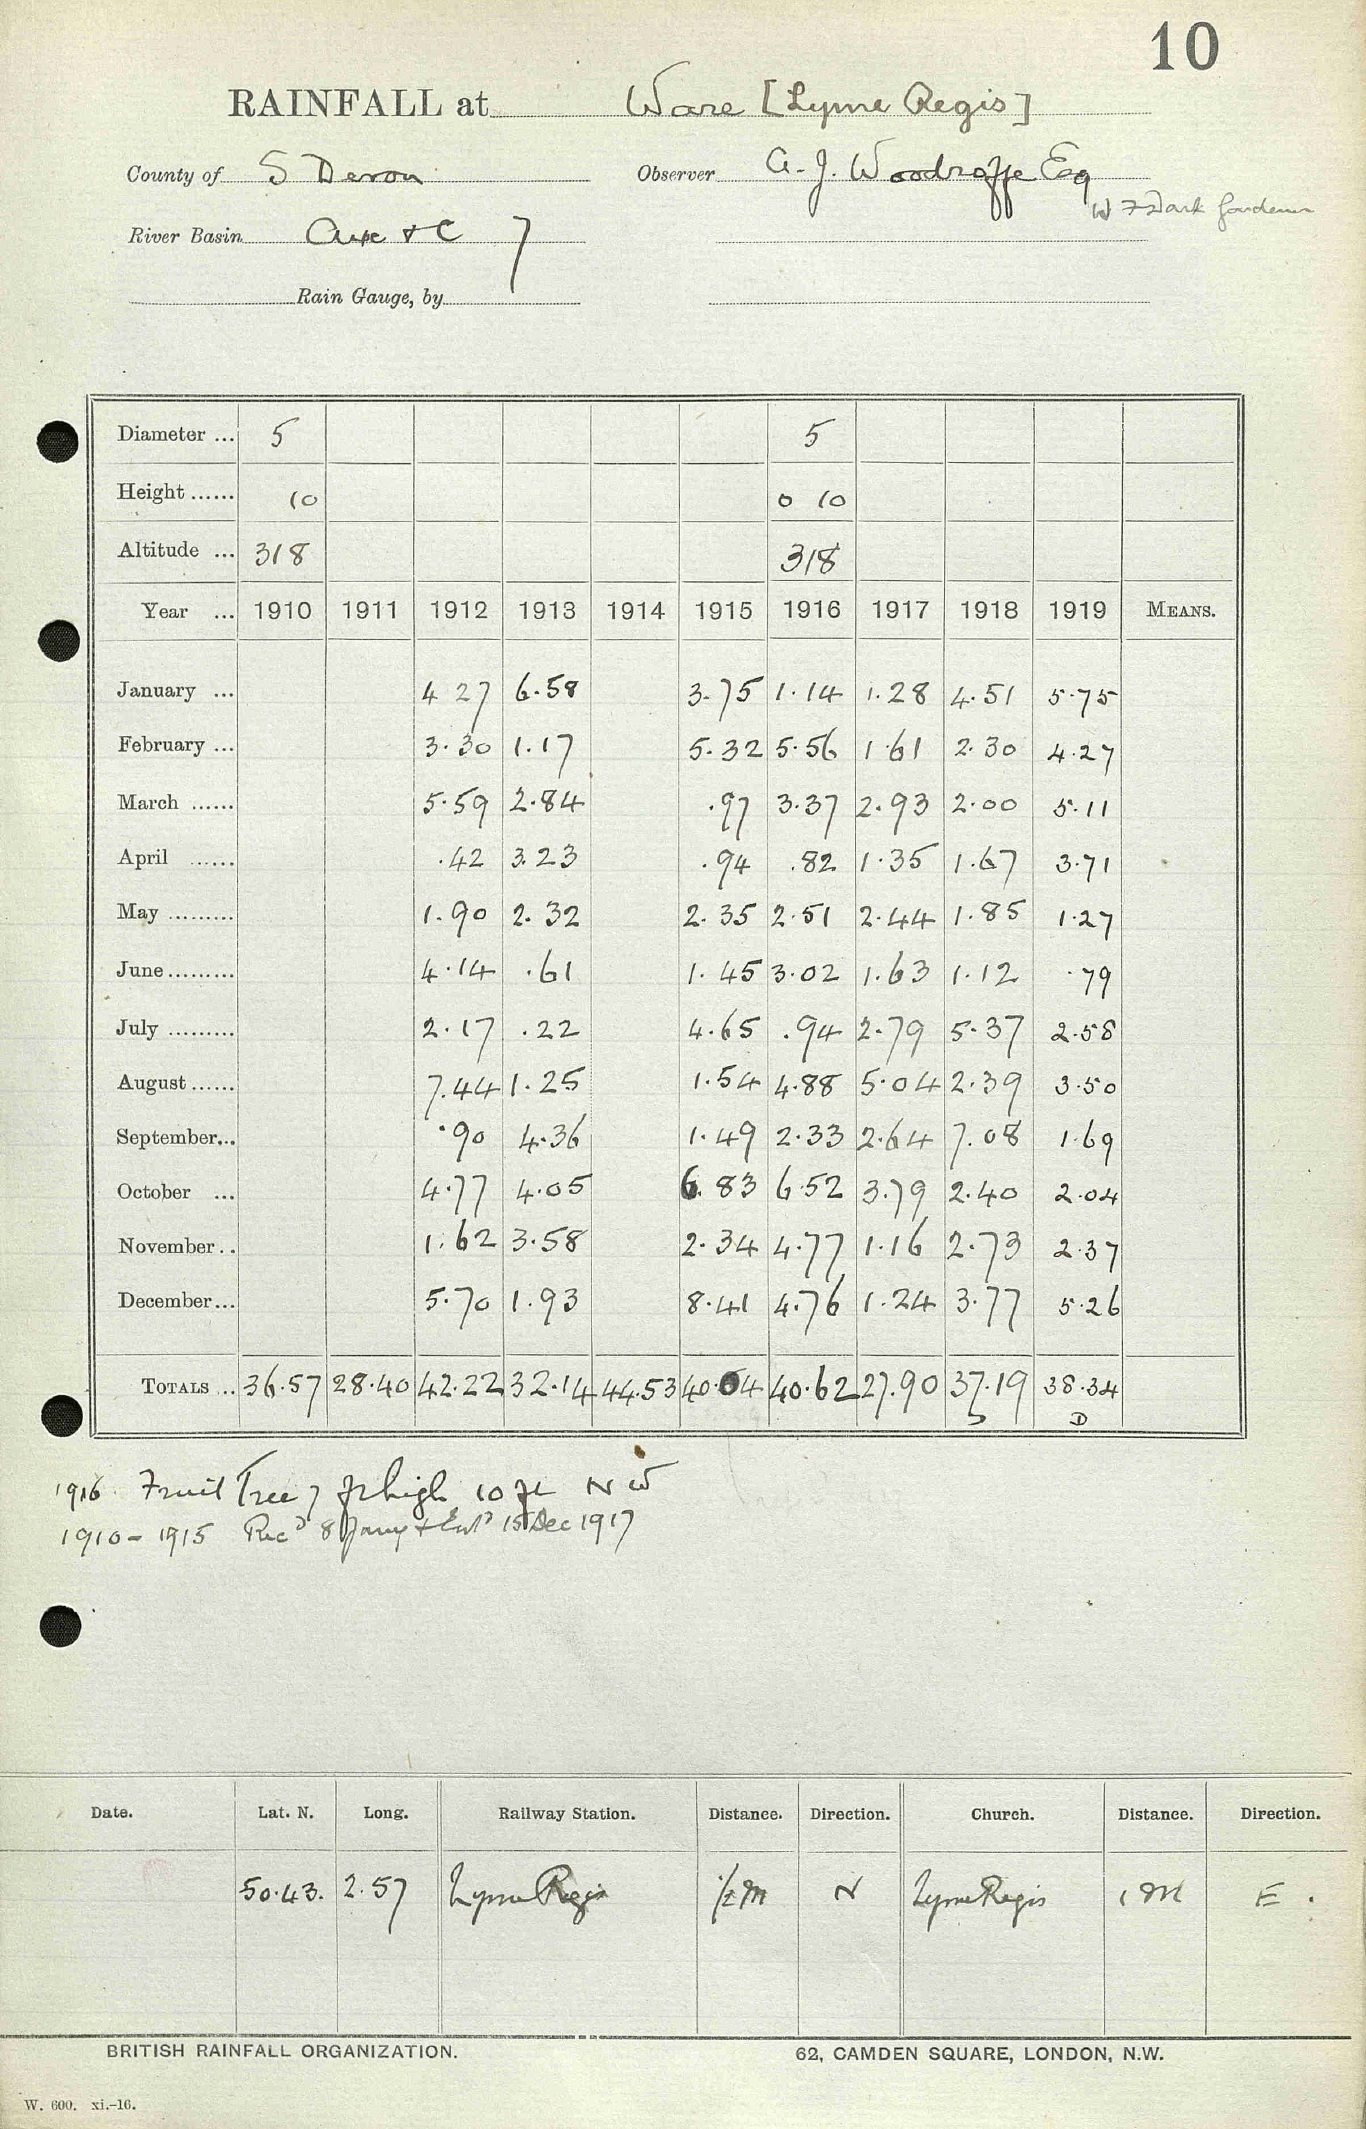 10
RAINFALL at Ware [Lyme Regis]
County of S Devon Observer A. J. Woodroffe Esq
W F Dark Gardener
River Basin Axe & C 7
Rain Gauge, by
Diameter ... 5 5
Height ...... 10 0 10
Altitude ... 318 318
Year ... 1910 1911 1912 1913 1914 1915 1916 1917 1918 1919 MEANS.
January ... 4 27 6.58 3.75 1.14 1.28 4.51 5.75
February ... 3.30 1.17 5.32 5.56 1.61 2.30 4.27
March ...... 5.59 2.84 .97 3.37 2.93 2.00 5.11
April ...... .42 3.23 .94 .82 1.35 1.67 3.71
May ......... 1.90 2.32 2.35 2.51 2.44 1.85 1.27
June ......... 4.14 .61 1.45 3.02 1.63 1.12 .79
July ......... 2.17 .22 4.65 .94 2.79 5.37 2.58
August ...... 7.44 1.25 1.54 4.88 5.04 2.39 3.50
September... .90 4.36 1.49 2.33 2.64 7.08 1.69
October ... 4.77 4.05 6.83 6.52 3.79 2.40 2.04
November .. 1.62 3.58 2.34 4.77 1.16 2.73 2.37
December... 5.70 1.93 8.41 4.76 1.24 3.77 5.26
TOTALS ... 36.57 28.40 42.22 32.14 44.53 40.04 40.62 27.90 37.19 38.34
D D
1916 Fruit Tree 7 ft high 10 ft N W
1910-1915 Recd 8 Jany & Entd 15 Dec 1917
Date. Lat. N. Long. Railway Station. Distance. Direction. Church. Distance. Direction.
50.43. 2.57 Lyme Regis 1/2 M N Lyme Regis 1 M E.
BRITISH RAINFALL ORGANIZATION. 62, CAMDEN SQUARE, LONDON, N.W.
W. 600. xi.-16.